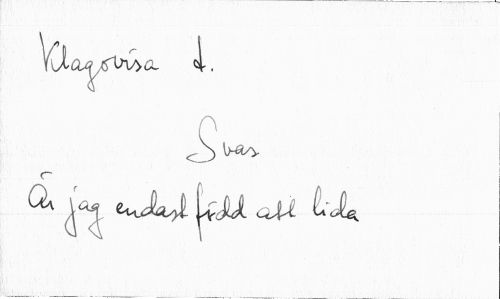 Klagovisa d.
Svar
Är jag endast född att lida